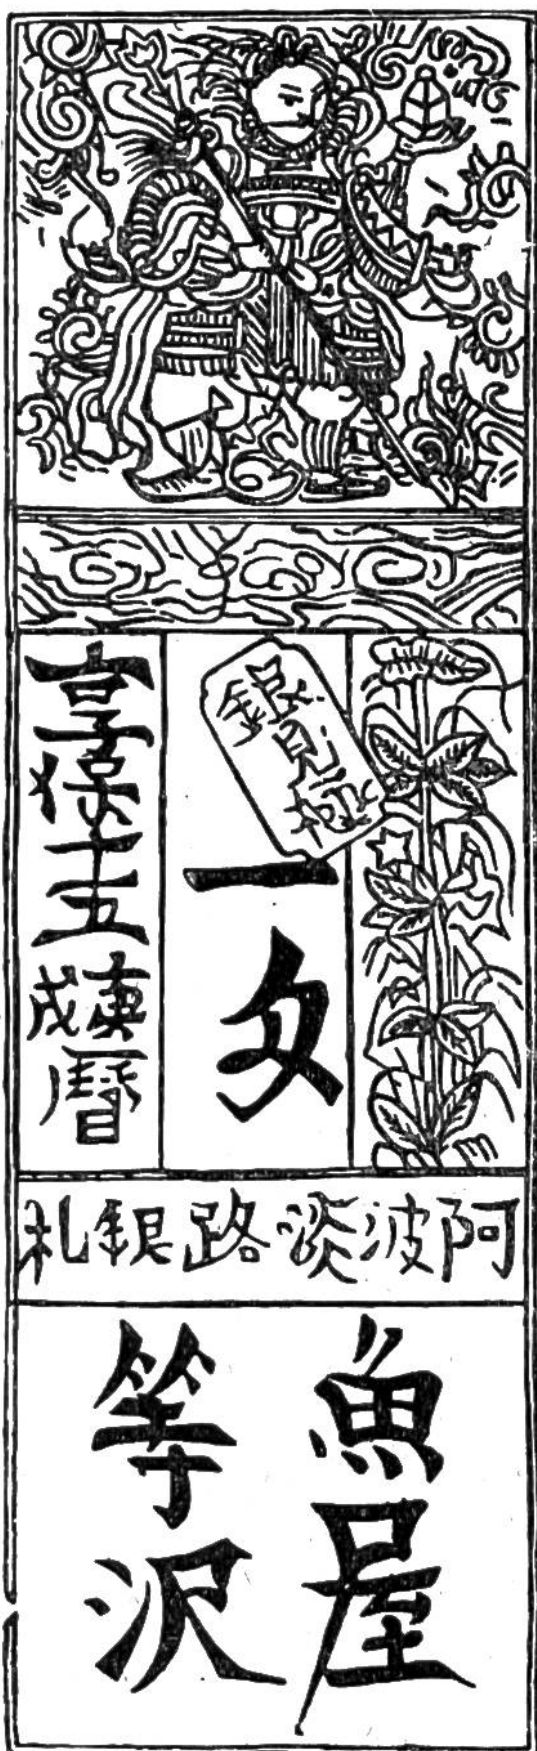 銀見極
一匁
享保十五庚戌暦
阿波淡路銀札
魚屋
等沢